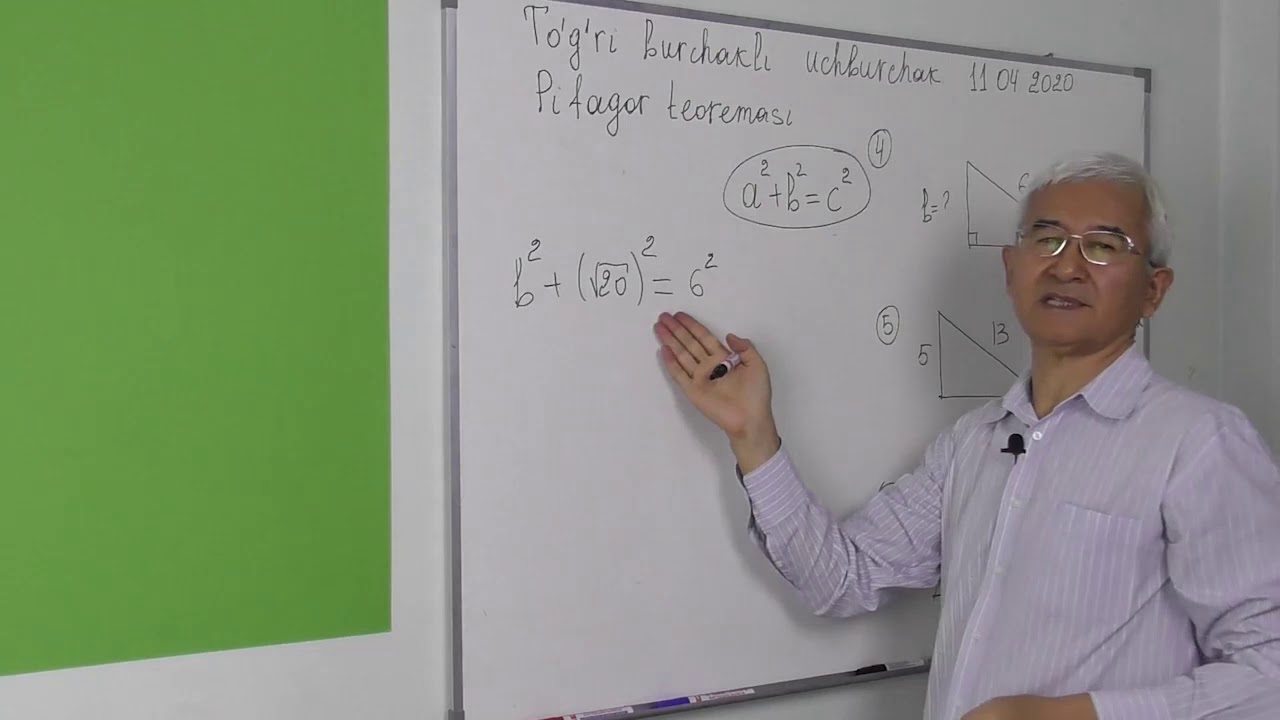 To'g'ri burchakli uchburchak 11 04 2020
Pifagor teoremasi
a²+b²=c²
4
b=?
6
b²+(√20)²=6²
5
5
13